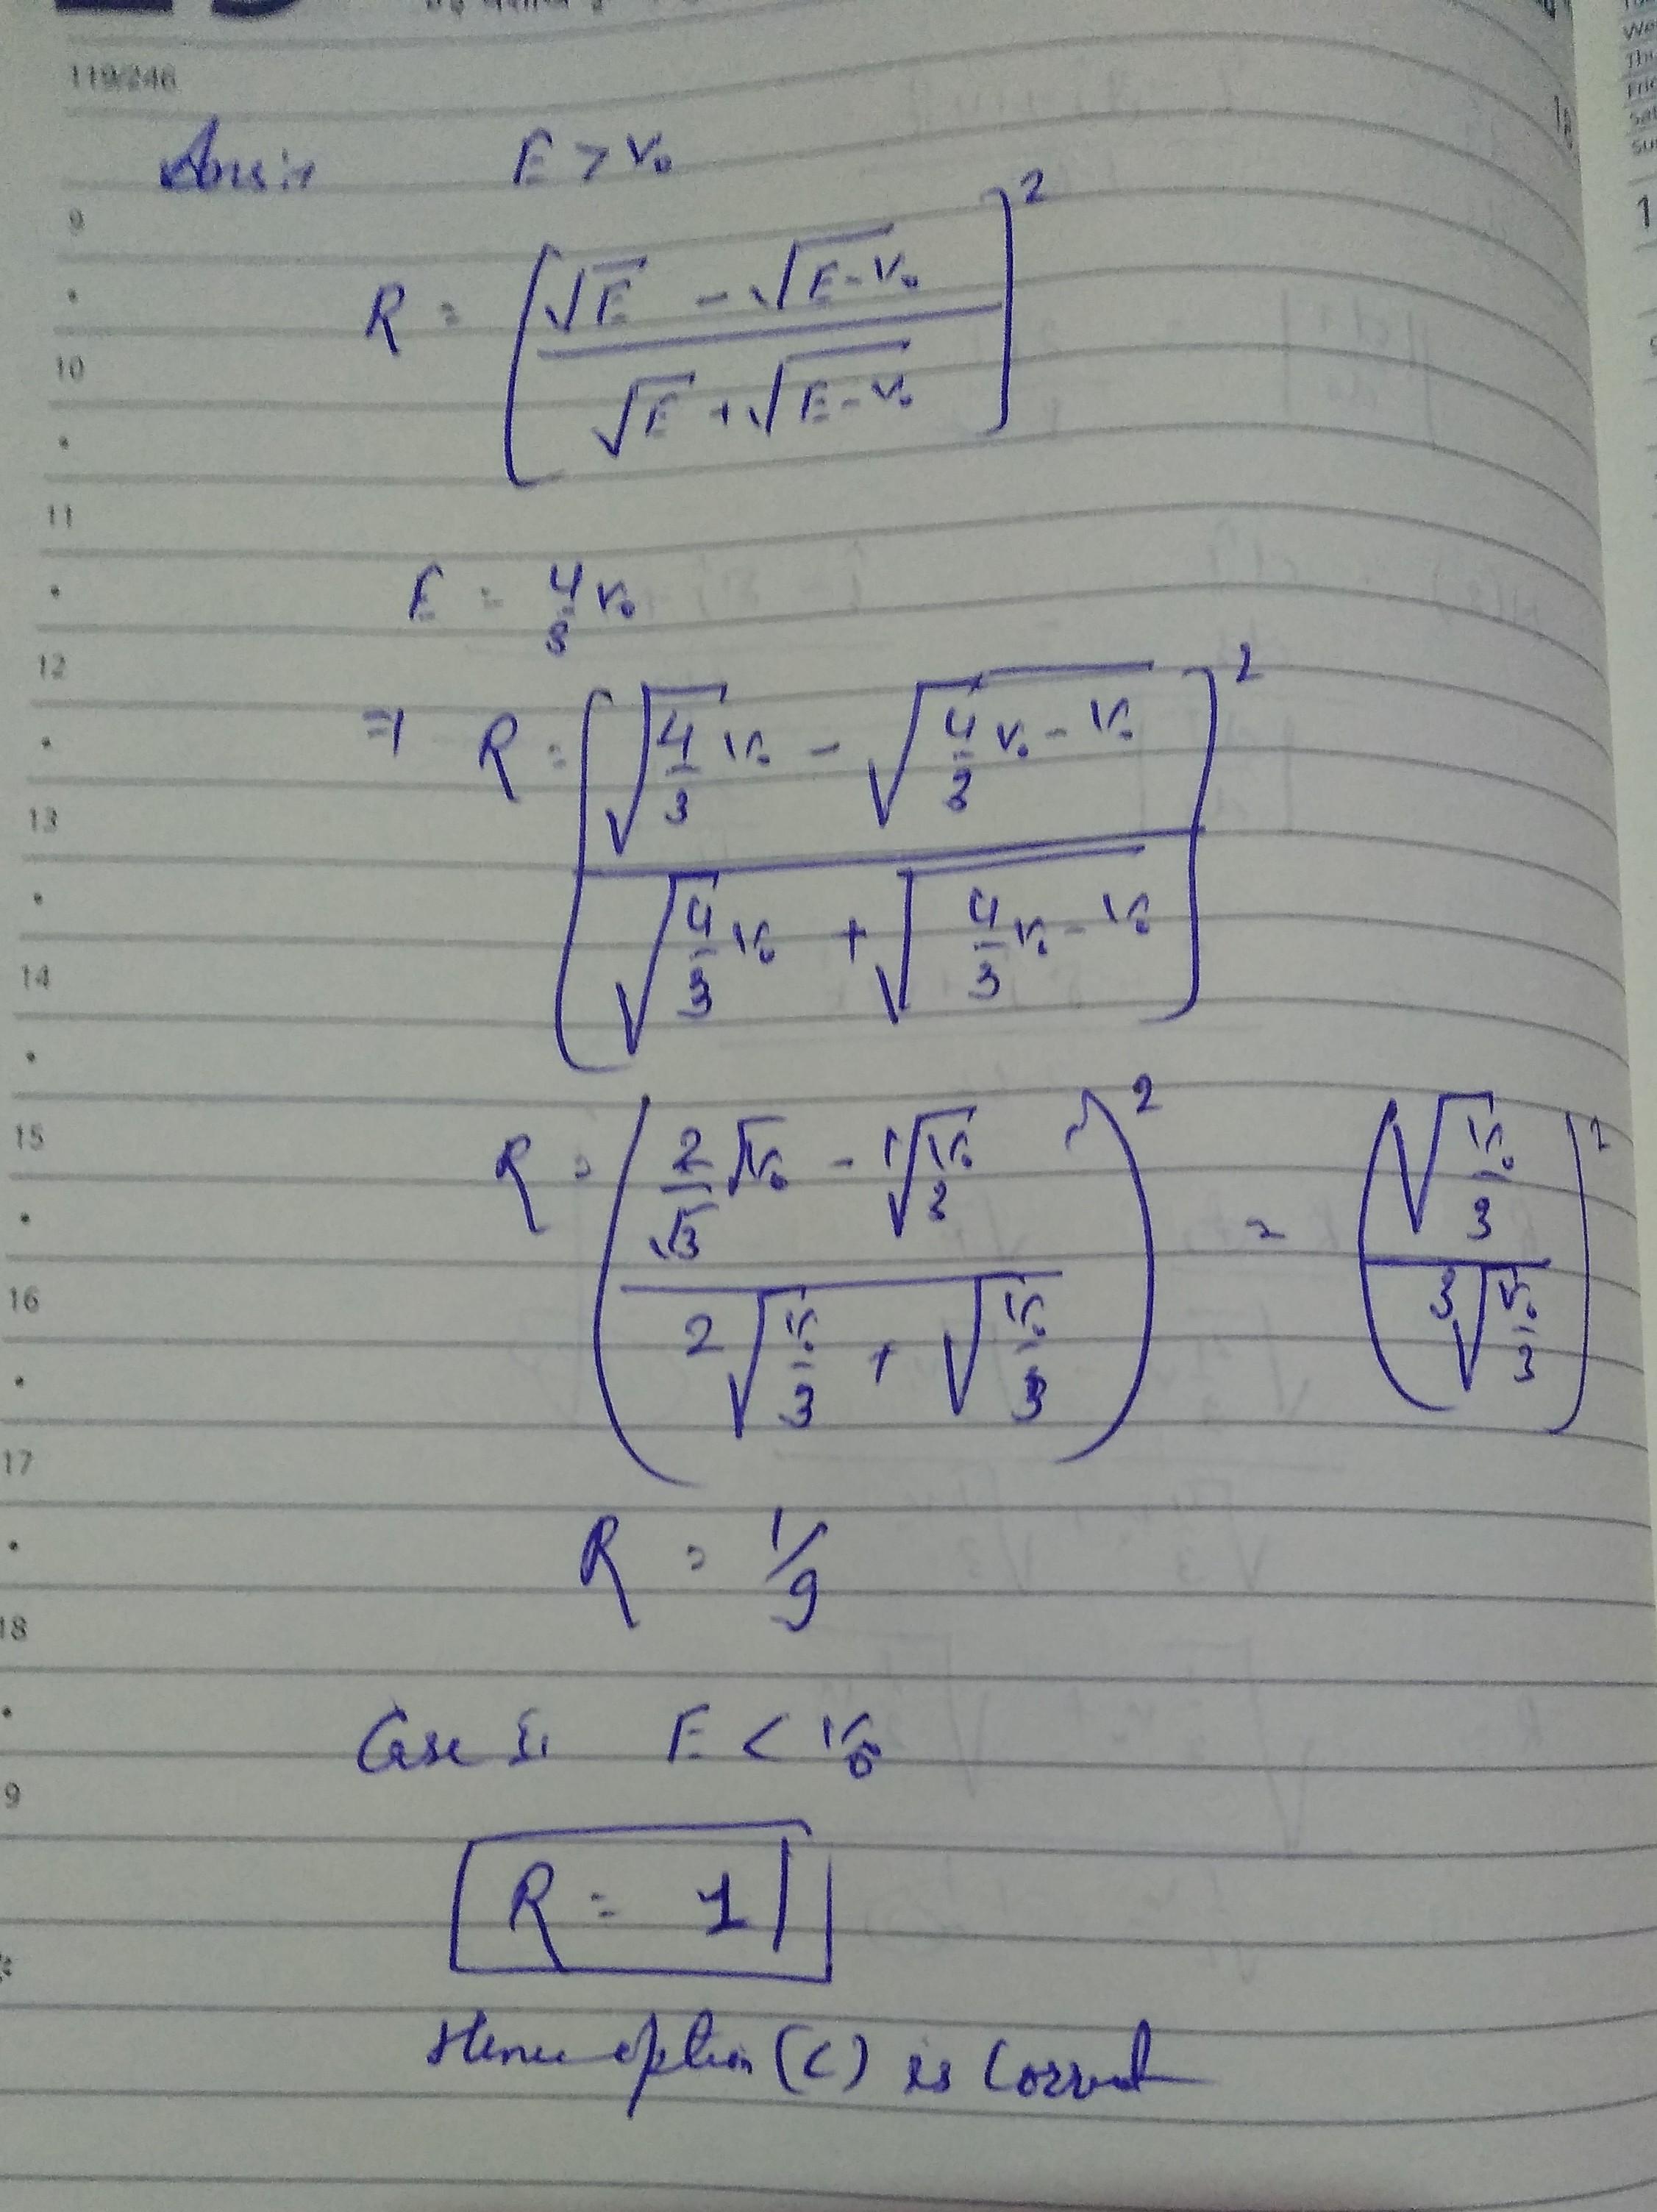 119/246
Ans:- E > V₀
9
R = [ (√E - √(E-V₀)) / (√E + √(E-V₀)) ]²
10
11
E = 4/3 V₀
12
⇒ R = [ (√(4/3 V₀) - √(4/3 V₀ - V₀)) / (√(4/3 V₀) + √(4/3 V₀ - V₀)) ]²
13
14
15
R = ( (2/√3 √V₀ - √(V₀/3)) / (2√(V₀/3) + √(V₀/3)) )² = ( √(V₀/3) / 3√(V₀/3) )²
16
17
R = 1/9
18
Case II E < V₀
9
R = 1
Hence option (C) is Correct